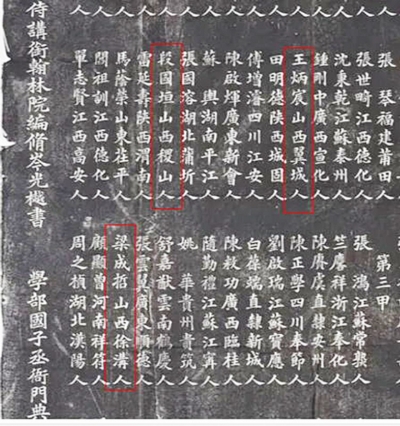 張 琴福建莆田人
張世畸江西德化人
沈秉乾江蘇泰州人
鍾剛中廣西宣化人
王炳宸山西翼城人
田明德陝西城固人
傅增濬四川江安人
陳啟煇廣東新會人
蘇 輿湖南平江人
張國溶湖北蒲圻人
段國垣山西稷山人
雷延壽陝西渭南人
馬蔭榮山東茌平人
祖訓江西德化人
單志賢江西高安人
侍講銜翰林院編脩岑光樾書
第三甲
張 鴻江蘇常熟人
竺麐祥浙江奉化人
陳賡虞直隸安州人
陳正學四川奉節人
劉啟瑞江蘇寶應人
白葆端直隸新城人
陳敉功廣西臨桂人
隨勤禮江蘇江寧人
姚 華貴州貴筑人
舒嘉猷雲南鶴慶人
張雲翼廣東順德人
梁成山西徐溝人
顧顯曾河南祥符人
周之楨湖北漢陽人
學部國子丞衙門典